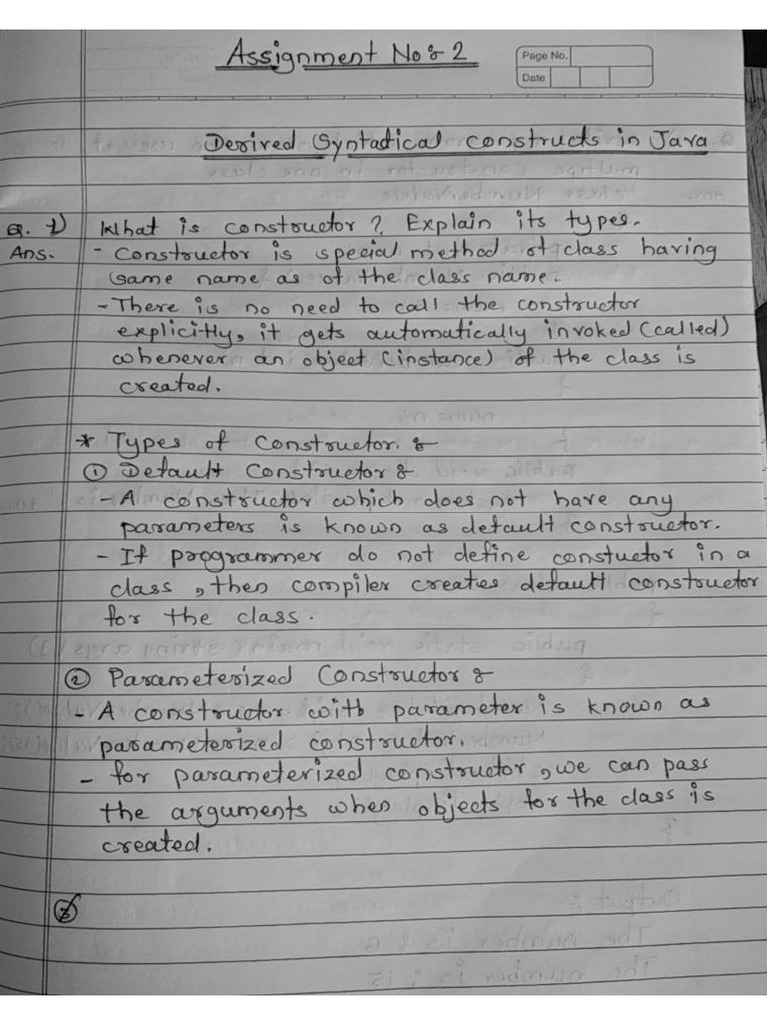 Assignment No : 2
Page No.
Date
Derived Syntactical constructs in Java
Q. 1) What is constructor ? Explain its types.
Ans. - Constructor is special method of class having
same name as of the class name.
- There is no need to call the constructor
explicitly, it gets automatically invoked (called)
whenever an object (instance) of the class is
created.
* Types of Constructor :
① Default Constructor :
- A constructor which does not have any
parameters is known as default constructor.
- If programmer do not define constuctor in a
class, then compiler creates default constructor
for the class.
② Parameterized Constructor :
- A constructor with parameter is known as
parameterized constructor.
- for parameterized constructor, we can pass
the arguments when objects for the class is
created.